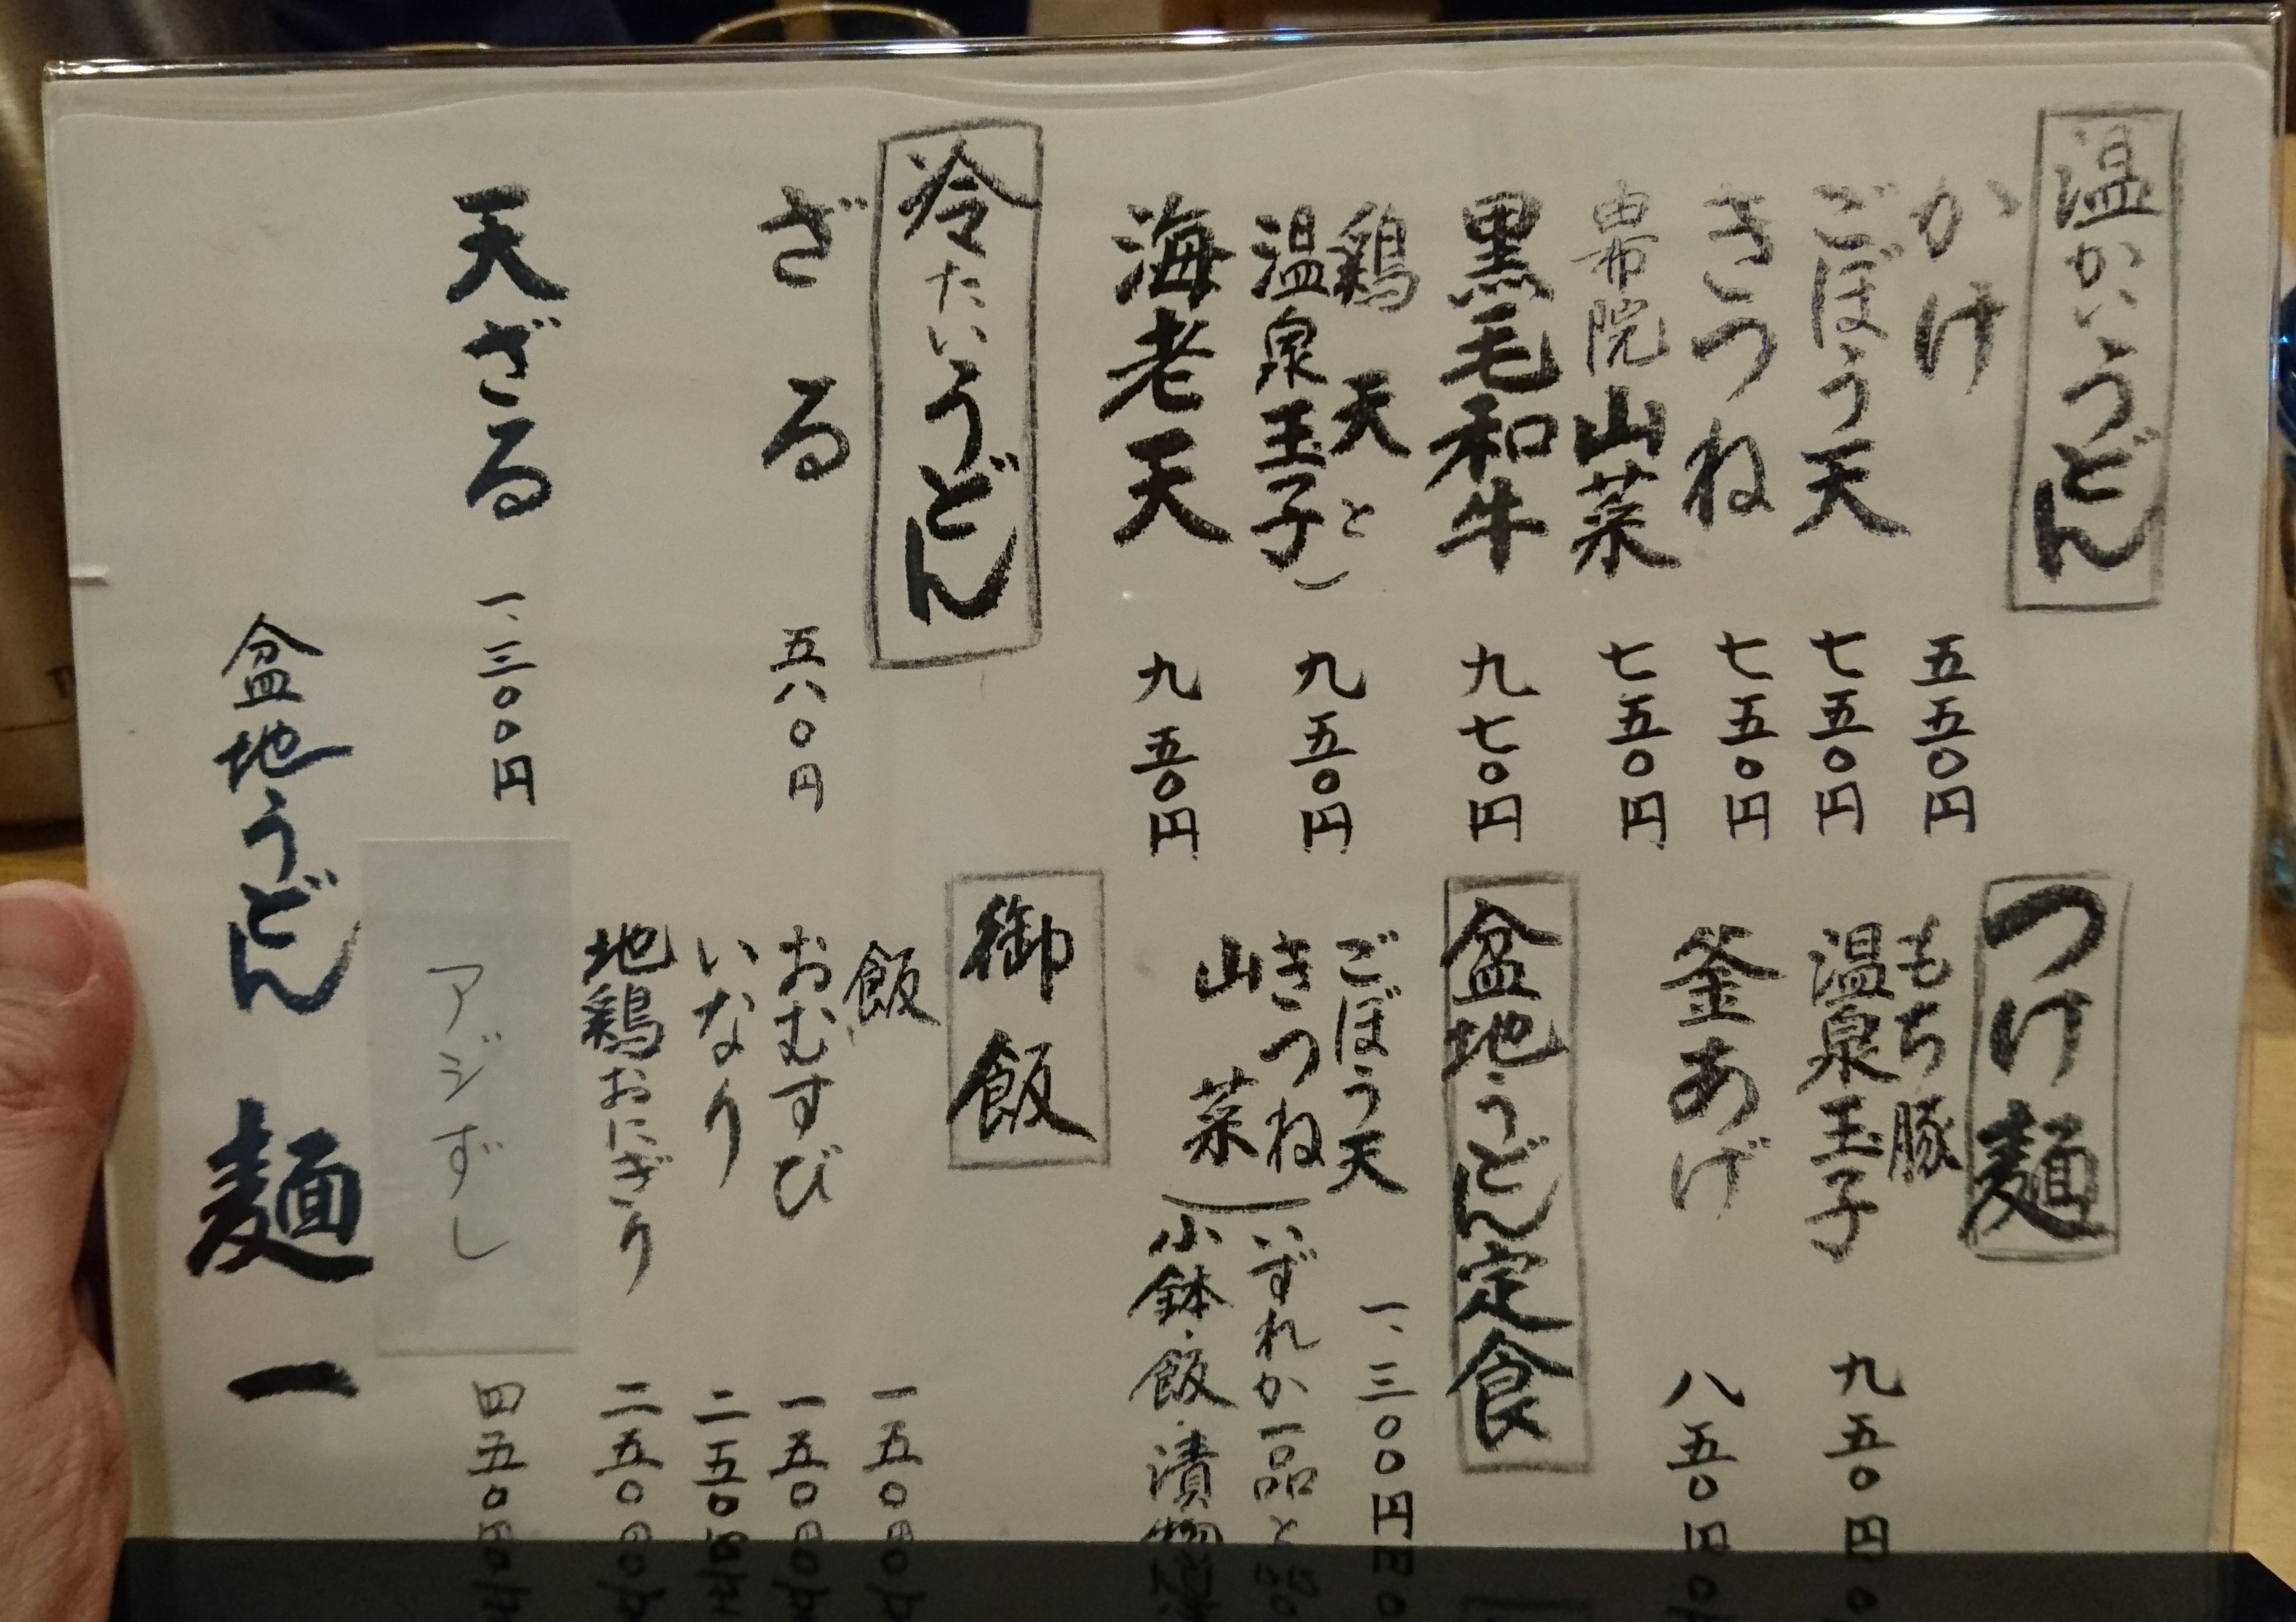 温かいうどん
かけ 五五〇円
ごぼう天 七五〇円
きつね 七五〇円
由布院山菜 七五〇円
黒毛和牛 九七〇円
鶏天と
温泉玉子 九五〇円
海老天 九五〇円
冷たいうどん
ざる 五八〇円
天ざる 一、三〇〇円
つけ麺
もち豚
温泉玉子 九五〇円
釜あげ 八五〇円
盆地うどん定食
ごぼう天 一、三〇〇円
きつね いずれか一品と
山菜 小鉢・飯・漬物
御飯
飯 一五〇円
おむすび 一五〇円
いなり 二五〇円
地鶏おにぎり 二五〇円
アジずし 四五〇円
盆地うどん 麺一